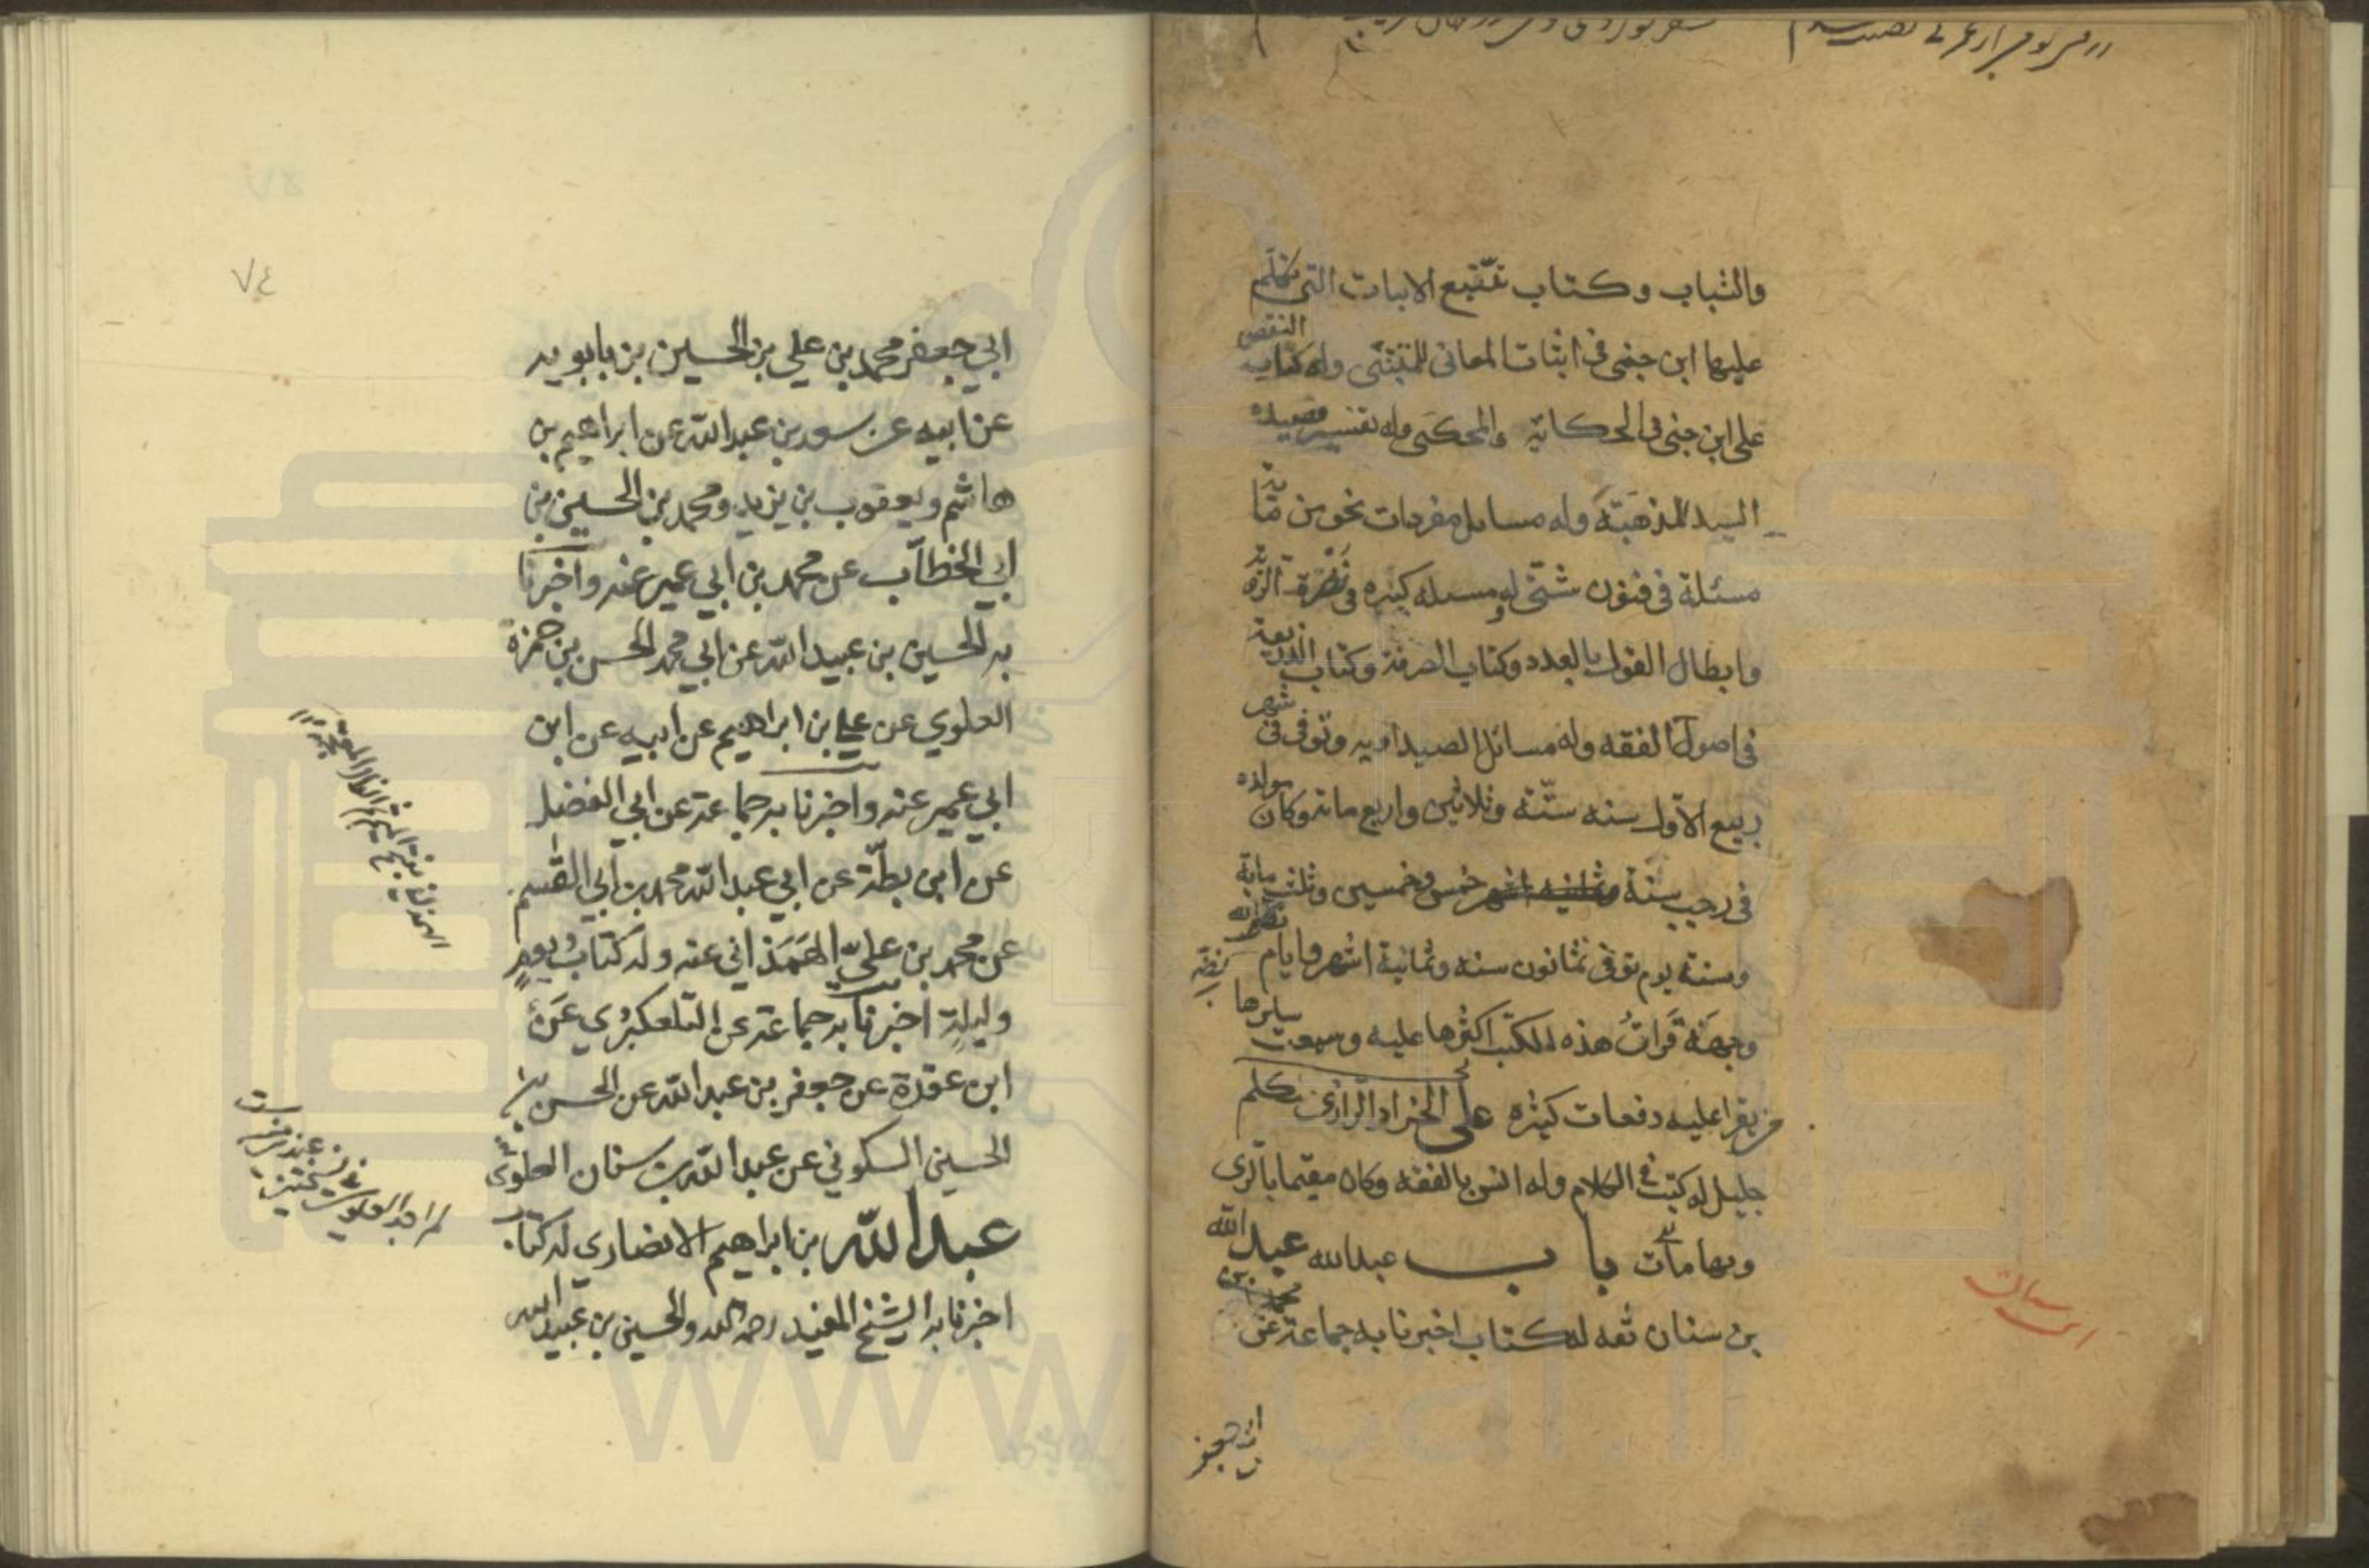 والشباب وكتاب تتبع الابيات التي تكلم
عليها ابن جنى فى اثبات المعانى للمتنبّى وله كتاب النقض
على ابن جنى فى الحكاية والمحكى وله تفسير قصيدة
السيد المذهبة وله مسايل مفردات نحو من مائة
مسئلة فى فنون شتى له مسله كبيره فى نصرة الرؤية
وابطال القول بالعدد وكتاب الصرفة وكتاب الذريعة
فى اصول الفقه وله مسائل الصيداويه وتوفى فى شهر
ربيع الاول سنه ستّة وثلاثين واربع مائة وكان مولده
فى رجب سنة خمس وخمسين وثلث ماية
وسنة يوم توفى ثمانون سنه وثمانية اشهر وايام
وجهه قرات هذه الكتب اكثرها عليه وسمعت سايرها
يقرا عليه دفعات كثيره على الخزاز الرازى متكلم
جليل له كتب فى الكلام وله انس بالفقه وكان مقيما بالرى
وبها مات باب عبدالله عبدالله
بن سنان ثقه له كتاب اخبرنا به جماعة عن
ابي جعفر
٧٤
ابي جعفر محمد بن علي بن الحسين بن بابويه
عن ابيه عن سعد بن عبد الله عن ابراهيم بن
هاشم ويعقوب بن يزيد ومحمد بن الحسين بن
ابي الخطاب عن محمد بن ابي عمير عنه واخبرنا
به الحسين بن عبيد الله عن ابي محمد الحسن بن حمزة
العلوي عن علي بن ابراهيم عن ابيه عن ابن
ابي عمير عنه واخبرنا به جماعة عن ابي الفضل
عن ابن بطّة عن ابي عبد الله محمد بن ابي القسم
عن محمد بن علي الهمذاني عنه وله كتاب يوم
وليلة اخبرنا به جماعة عن التلعكبري عن
ابن عقدة عن جعفر بن عبد الله عن الحسن بن
الحسين السكوني عن عبد الله بن سنان
عبد الله بن ابراهيم الانصاري له كتاب
اخبرنا به الشيخ المفيد رحمه الله والحسين بن عبيد الله